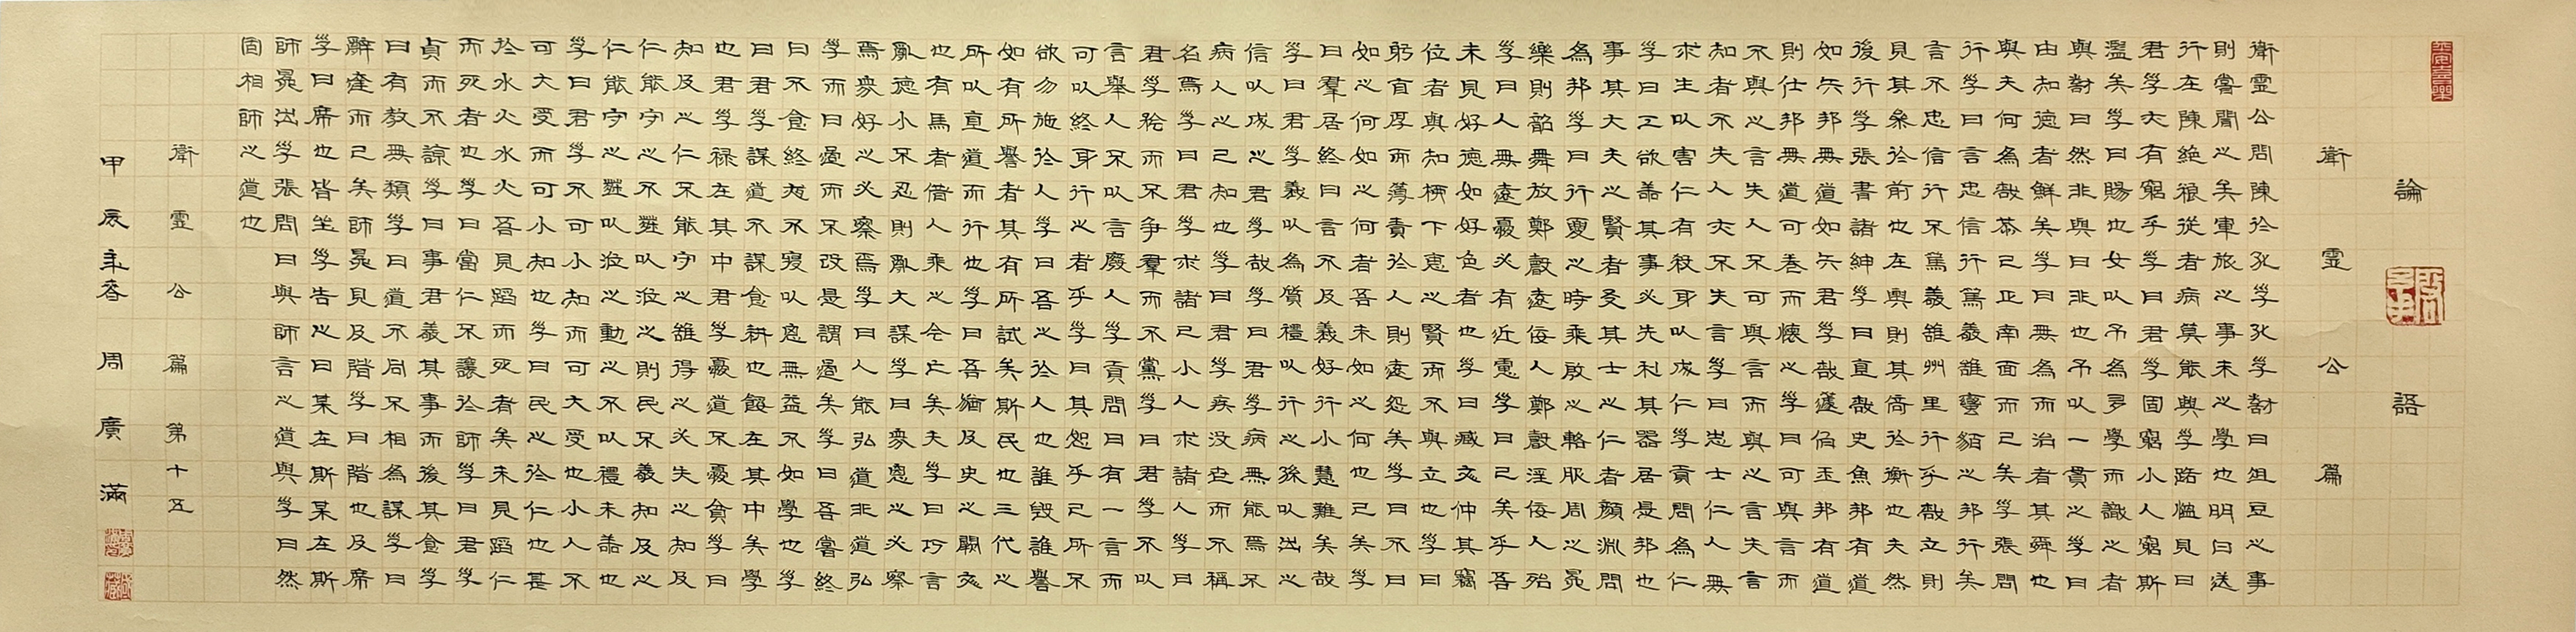 論語
衛靈公篇
衛靈公問陳於孔子孔子對曰俎豆之事
則嘗聞之矣軍旅之事未之學也明日遂
行在陳絕糧從者病莫能興子路慍見曰
君子亦有窮乎子曰君子固窮小人窮斯
濫矣子曰賜也女以予為多學而識之者
與對曰然非與曰非也予一以貫之子曰
由知德者鮮矣子曰無為而治者其舜也
與夫何為哉恭己正南面而已矣子張問
行子曰言忠信行篤敬雖蠻貊之邦行矣
言不忠信行不篤敬雖州里行乎哉立則
見其參於前也在輿則其倚於衡也夫然
後行子張書諸紳子曰直哉史魚邦有道
如矢邦無道如矢君子哉蘧伯玉邦有道
則仕邦無道可卷而懷之子曰可與言而
不與之言失人不可與言而與之言失言
知者不失人亦不失言子曰志士仁人無
求生以害仁有殺身以成仁子貢問為仁
子曰工欲善其事必先利其器居是邦也
事其大夫之賢者友其士之仁者顏淵問
為邦子曰行夏之時乘殷之輅服周之冕
樂則韶舞放鄭聲遠佞人鄭聲淫佞人殆
子曰人無遠慮必有近憂子曰已矣乎吾
未見好德如好色者也子曰臧文仲其竊
位者與知柳下惠之賢而不與立也子曰
躬自厚而薄責於人則遠怨矣子曰不曰
如之何如之何者吾末如之何也已矣子
曰羣居終日言不及義好行小慧難矣哉
子曰君子義以為質禮以行之孫以出之
信以成之君子哉子曰君子病無能焉不
病人之己知也子曰君子疾没世而不稱
名焉子曰君子求諸己小人求諸人子曰
君子矜而不爭羣而不黨子曰君子不以
言舉人不以言廢人子貢問曰有一言而
可以終身行之者乎子曰其恕乎己所不
欲勿施於人子曰吾之於人也誰毀誰譽
如有所譽者其有所試矣斯民也三代之
所以直道而行也子曰吾猶及史之闕文
也有馬者借人乘之今亡矣夫子曰巧言
亂德小不忍則亂大謀子曰衆惡之必察
焉衆好之必察焉子曰人能弘道非道弘
子而曰過而不改是謂過矣子曰吾嘗終
日不食終夜不寢以思無益不如學也子
曰君子謀道不謀食耕也餒在其中矣學
也君子禄在其中君子憂道不憂貧子曰
知及之仁不能守之雖得之必失之知及
仁能守之不莊以涖之則民不敬知及之
仁能守之莊以涖之動之不以禮未善也
子曰君子不可小知而可大受也小人不
可大受而可小知也子曰民之於仁也甚
於水火水火吾見蹈而死者矣未見蹈仁
而死者也子曰當仁不讓於師子曰君子
貞而不諒子曰事君敬其事而後其食子
曰有教無類子曰道不同不相為謀子曰
辭達而已矣師冕見及階子曰階也及席
子曰席也皆坐子告之曰某在斯某在斯
師冕出子張問曰與師言之道與子曰然
固相師之道也
衛靈公篇第十五
甲辰年春周廣滿